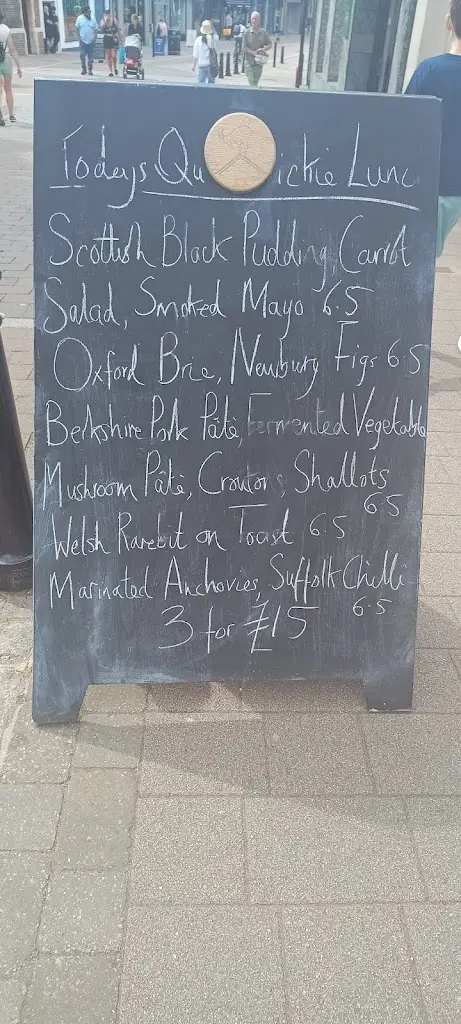 Todays Qu ickie Lunc
Scottish Black Pudding, Carrot
Salad, Smoked Mayo 6.5
Oxford Brie, Newbury Figs 6.5
Berkshire Pork Pâté, Fermented Vegetable
Mushroom Pâté, Croutons, Shallots
6.5
Welsh Rarebit on Toast 6.5
Marinated Anchovies, Suffolk Chilli
6.5
3 for £15